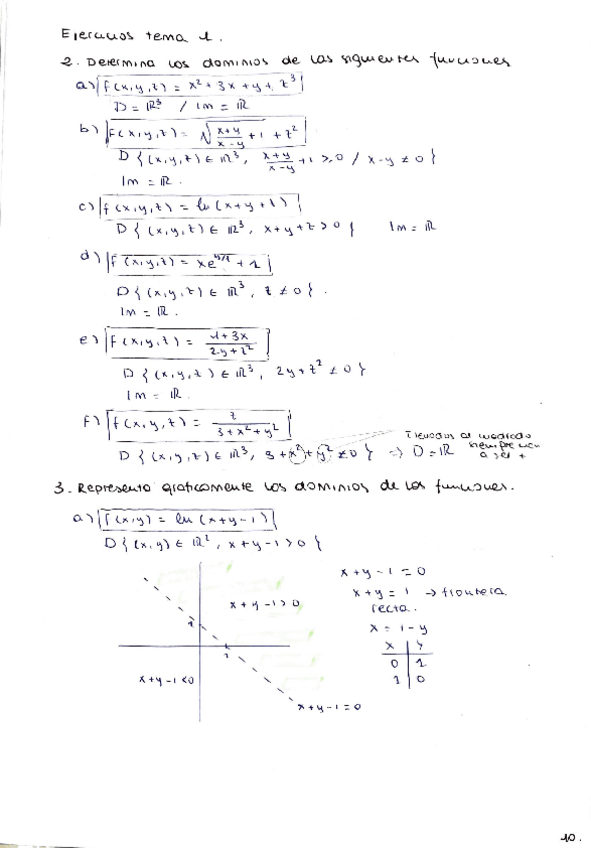 Ejercicios tema 1.
2. Determina los dominios de las siguientes funciones
a) f(x,y,z) = x² + 3x + y + z³
D = ℝ³ / Im = ℝ
b) f(x,y,z) = √((x+y)/(x-y) + 1) + z²
D { (x,y,z) ∈ ℝ³, (x+y)/(x-y) + 1 ≥ 0 / x-y ≠ 0 }
Im = ℝ.
c) f(x,y,z) = ln(x+y+1)
D { (x,y,z) ∈ ℝ³, x+y+z > 0 } Im = ℝ
d) f(x,y,z) = xe^(y/z) + 1
D { (x,y,z) ∈ ℝ³, z ≠ 0 }.
Im = ℝ.
e) f(x,y,z) = (1+3x)/(2y+z²)
D { (x,y,z) ∈ ℝ³, 2y+z² ≠ 0 }
Im = ℝ.
f) f(x,y,z) = z/(3+x²+y²)
D { (x,y,z) ∈ ℝ³, 3+x²+y² ≠ 0 } => D = ℝ
elevados al cuadrado
siempre
a ser +
3. Representa gráficamente los dominios de las funciones.
a) f(x,y) = ln(x+y-1)
D { (x,y) ∈ ℝ², x+y-1 > 0 }
x+y-1 = 0
x+y = 1 → frontera
recta.
x = 1-y
x y
0 1
1 0
x+y-1 > 0
1
1
x+y-1 < 0
x+y-1 = 0
10.